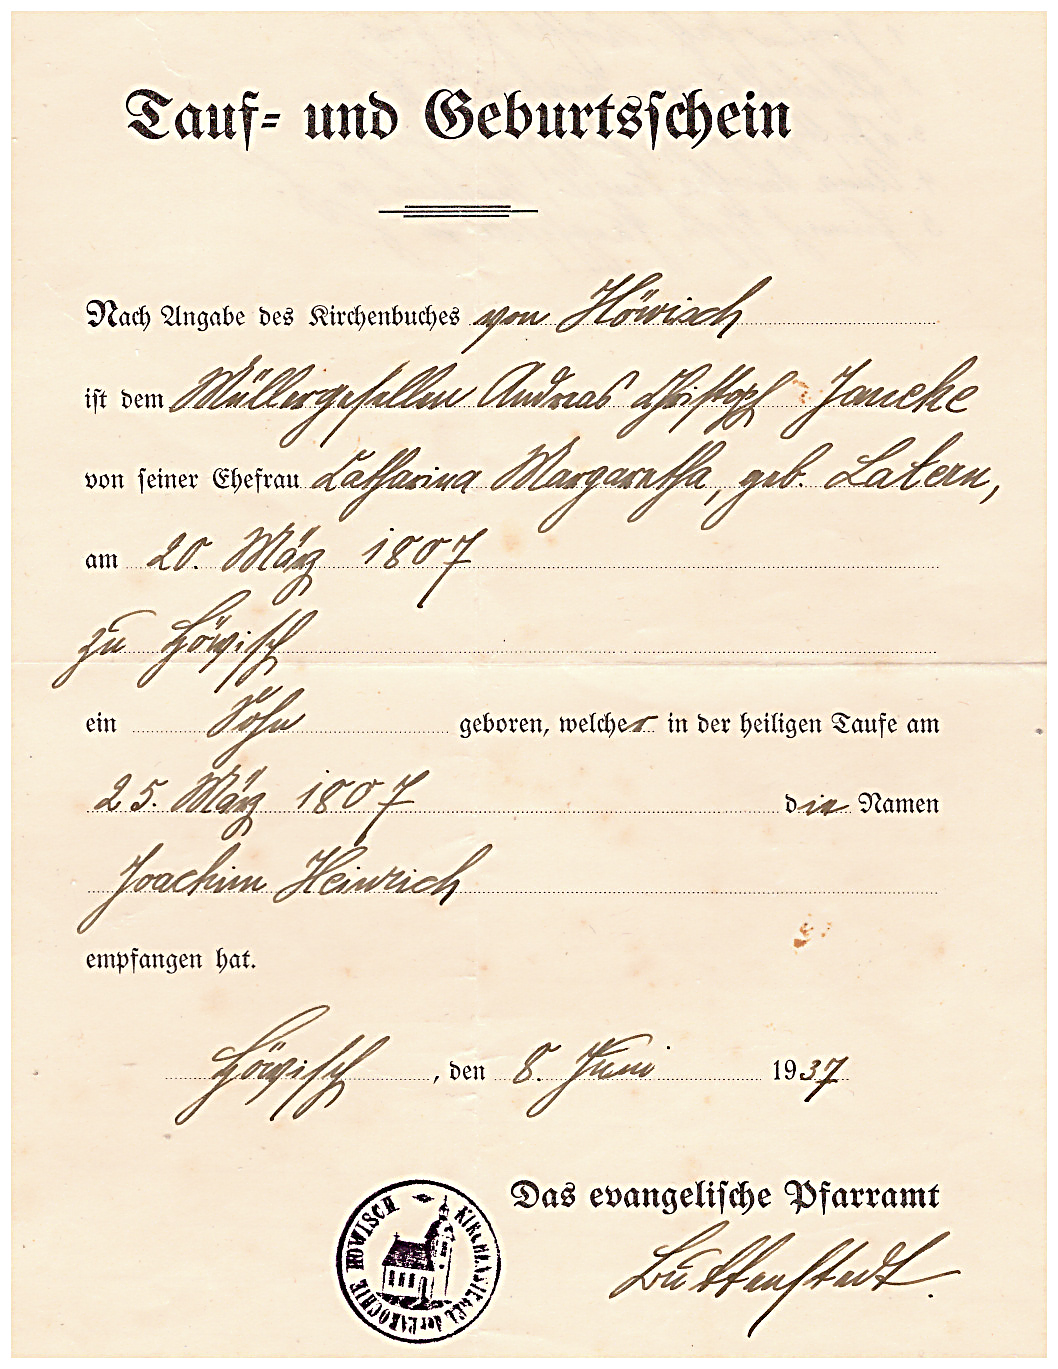 Tauf- und Geburtsschein
Nach Angabe des Kirchenbuches von Höwisch
ist dem Müllergesellen Andreas Christoph Jancke
von seiner Ehefrau Catharina Margaretha, geb. Latern,
am 20. März 1807
zu Höwisch
ein Sohn geboren, welcher in der heiligen Taufe am
25. März 1807 die Namen
Joachim Heinrich
empfangen hat.
Höwisch, den 8. Juni 1937
Das evangelische Pfarramt
Buttenstedt.
KIRCHENSIEGEL der PAROCHIE HÖWISCH